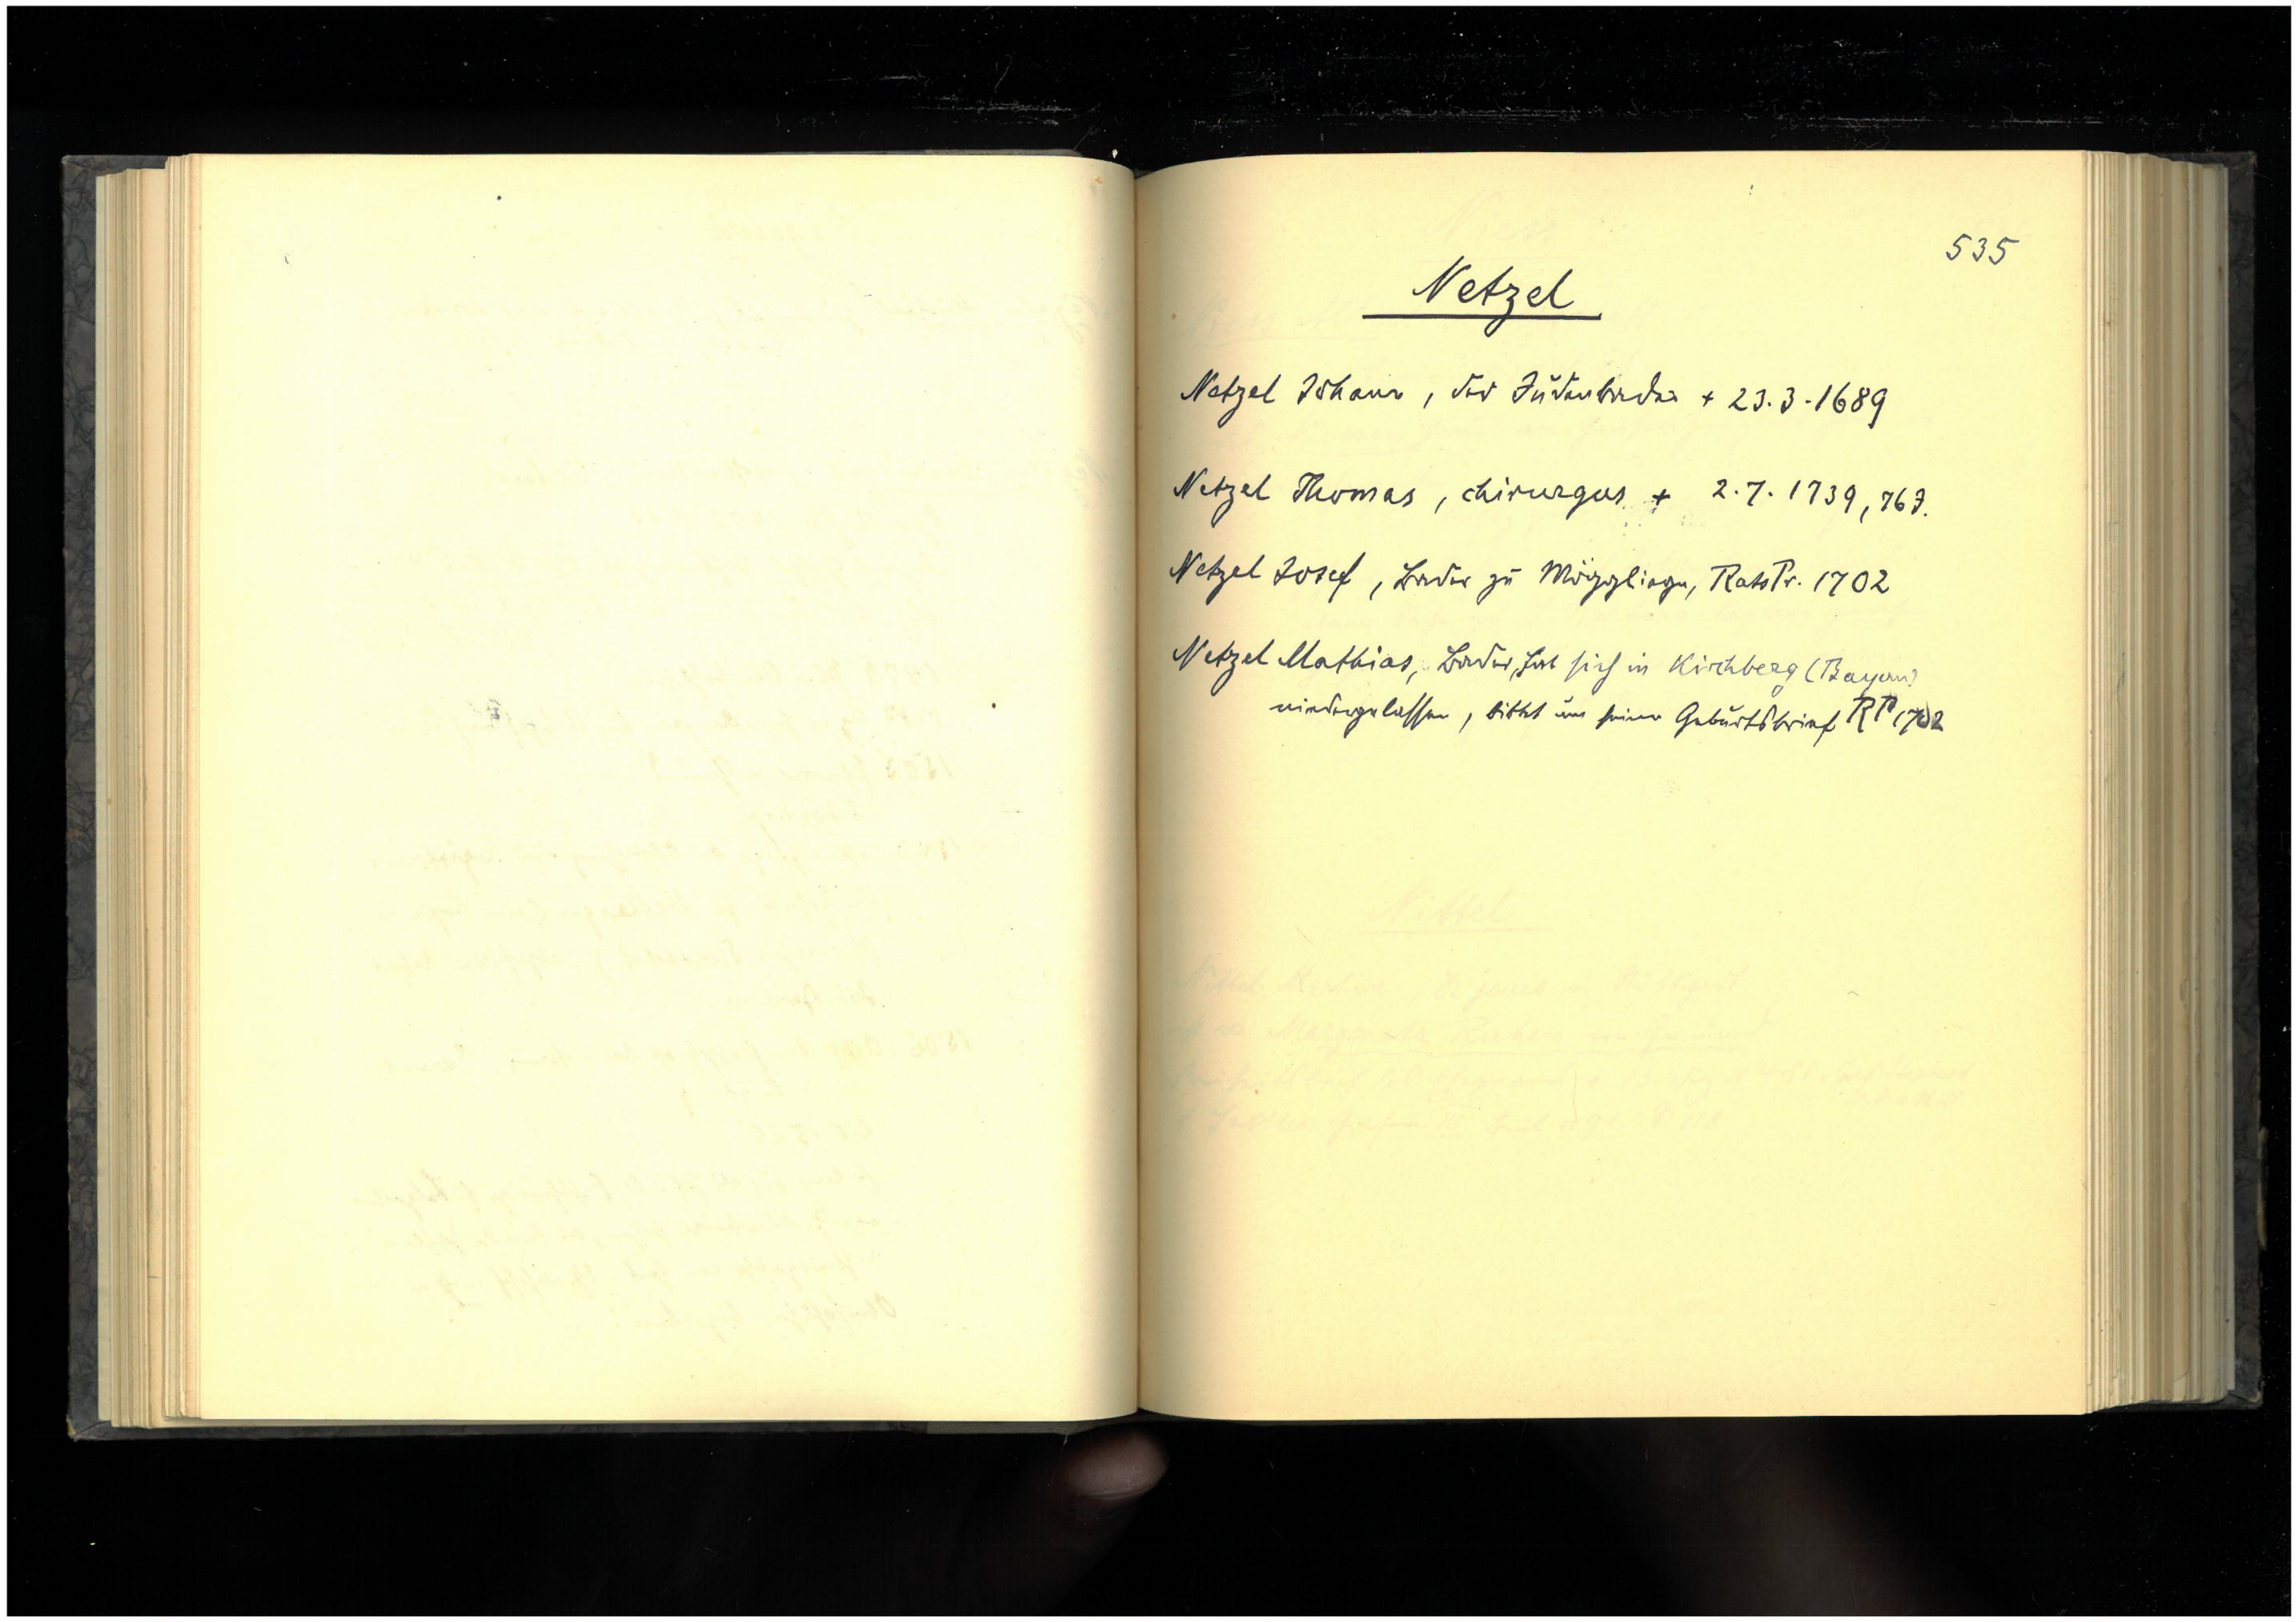 535
Netzel
Netzel Johann, der Judenbader + 23.3.1689
Netzel Thomas, chirurgus + 2.7.1739, 76 J.
Netzel Josef, Bader zu Mögglingen, RatsPr. 1702
Netzel Mathias, Bader, hat sich in Kirchberg (Bayern)
niedergelassen, bittet um seinen Geburtsbrief RP 1702